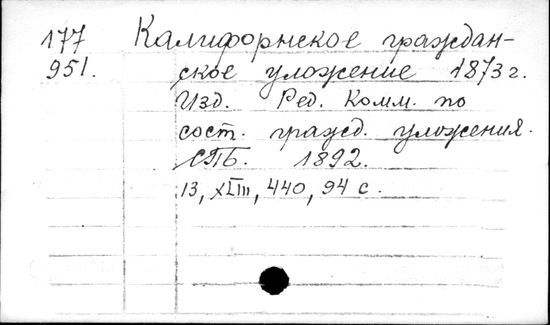 177 Калифорнское граждан-
951. ское уложение 1873 г.
Изд. Ред. Комм. по
сост. гражд. уложения.
СПБ. 1892.
13, XLIII, 440, 94 с.